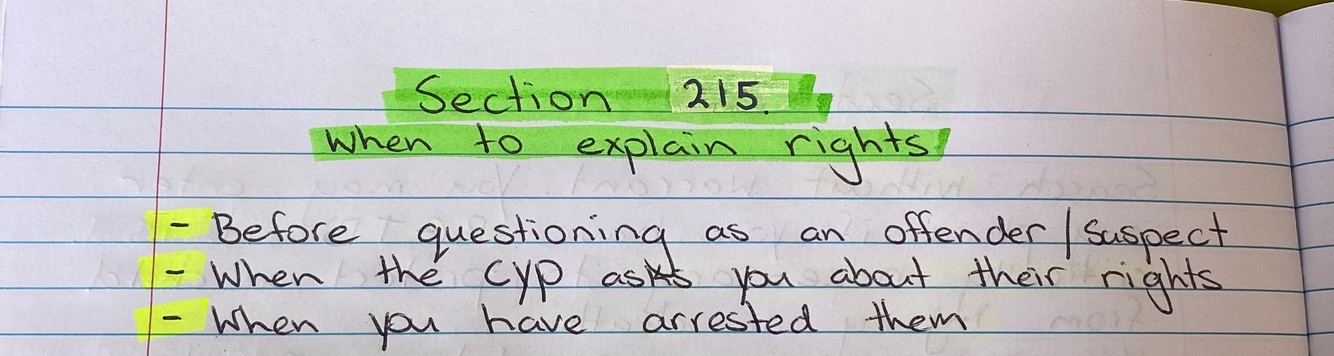 Section 215.
When to explain rights
- Before questioning as an offender/suspect
- When the CYP asks you about their rights
- When you have arrested them